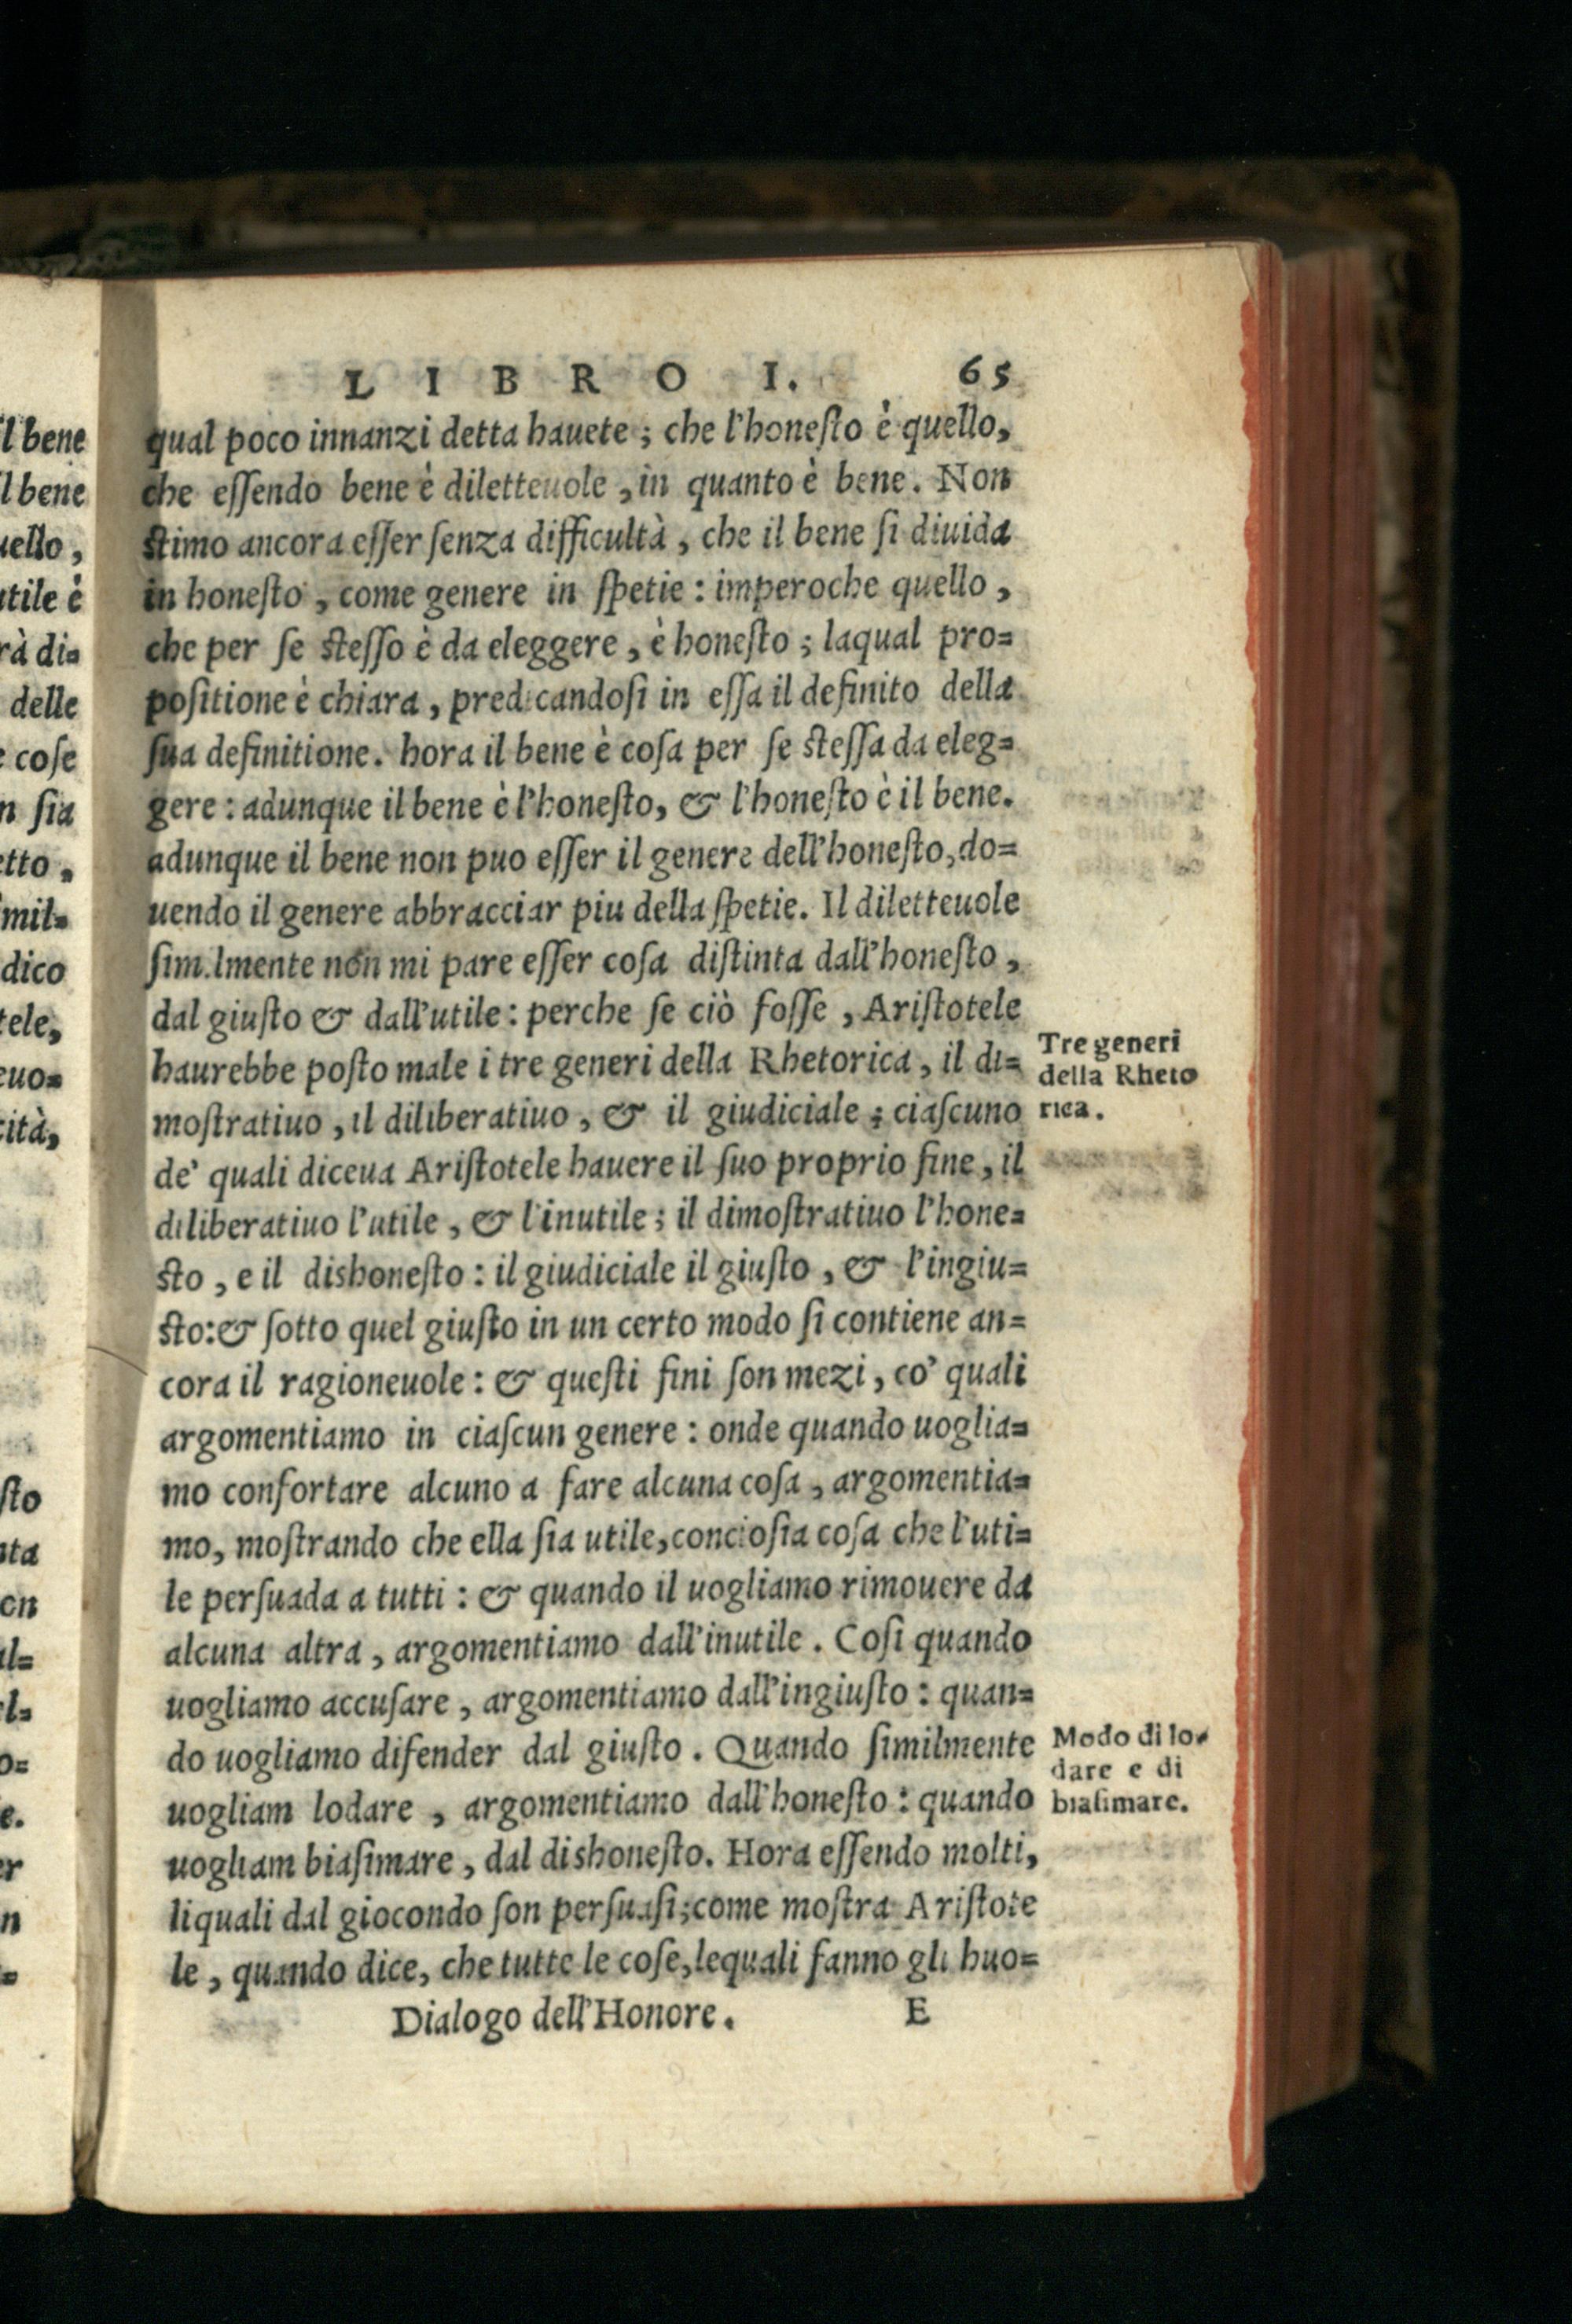 LIBRO I. 65
qual poco innanzi detta hauete; che l'honeſto è quello,
che eſſendo bene è diletteuole, in quanto è bene. Non
ſtimo ancora eſſer ſenza difficultà, che il bene ſi diuida
in honeſto, come genere in ſpetie: imperoche quello,
che per ſe ſteſſo è da eleggere, è honeſto; laqual pro=
poſitione è chiara, predicandoſi in eſſa il definito della
ſua definitione. hora il bene è coſa per ſe ſteſſa da eleg=
gere: adunque il bene è l'honeſto, & l'honeſto è il bene.
adunque il bene non puo eſſer il genere dell'honeſto, do=
uendo il genere abbracciar piu della ſpetie. Il diletteuole
ſimilmente non mi pare eſſer coſa diſtinta dall'honeſto,
dal giuſto & dall'utile: perche ſe ciò foſſe, Ariſtotele
haurebbe poſto male i tre generi della Rhetorica, il di=
moſtratiuo, il diliberatiuo, & il giudiciale; ciaſcuno
de' quali diceua Ariſtotele hauere il ſuo proprio fine, il
diliberatiuo l'utile, & l'inutile; il dimoſtratiuo l'hone=
ſto, e il dishoneſto: il giudiciale il giuſto, & l'ingiu=
ſto: & ſotto quel giuſto in un certo modo ſi contiene an=
cora il ragioneuole: & queſti fini ſon mezi, co' quali
argomentiamo in ciaſcun genere: onde quando uoglia=
mo confortare alcuno a fare alcuna coſa, argomentia=
mo, moſtrando che ella ſia utile, concioſia coſa che l'uti=
le perſuada a tutti: & quando il uogliamo rimouere da
alcuna altra, argomentiamo dall'inutile. Coſi quando
uogliamo accuſare, argomentiamo dall'ingiuſto: quan=
do uogliamo difender dal giuſto. Quando ſimilmente
uogliam lodare, argomentiamo dall'honeſto: quando
uogliam biaſimare, dal dishoneſto. Hora eſſendo molti,
liquali dal giocondo ſon perſuaſi; come moſtra Ariſtote
le, quando dice, che tutte le coſe, lequali fanno gli huo=
Dialogo dell'Honore. E
Tre generi
della Rheto
rica.
Modo di lo-
dare e di
biaſimare.